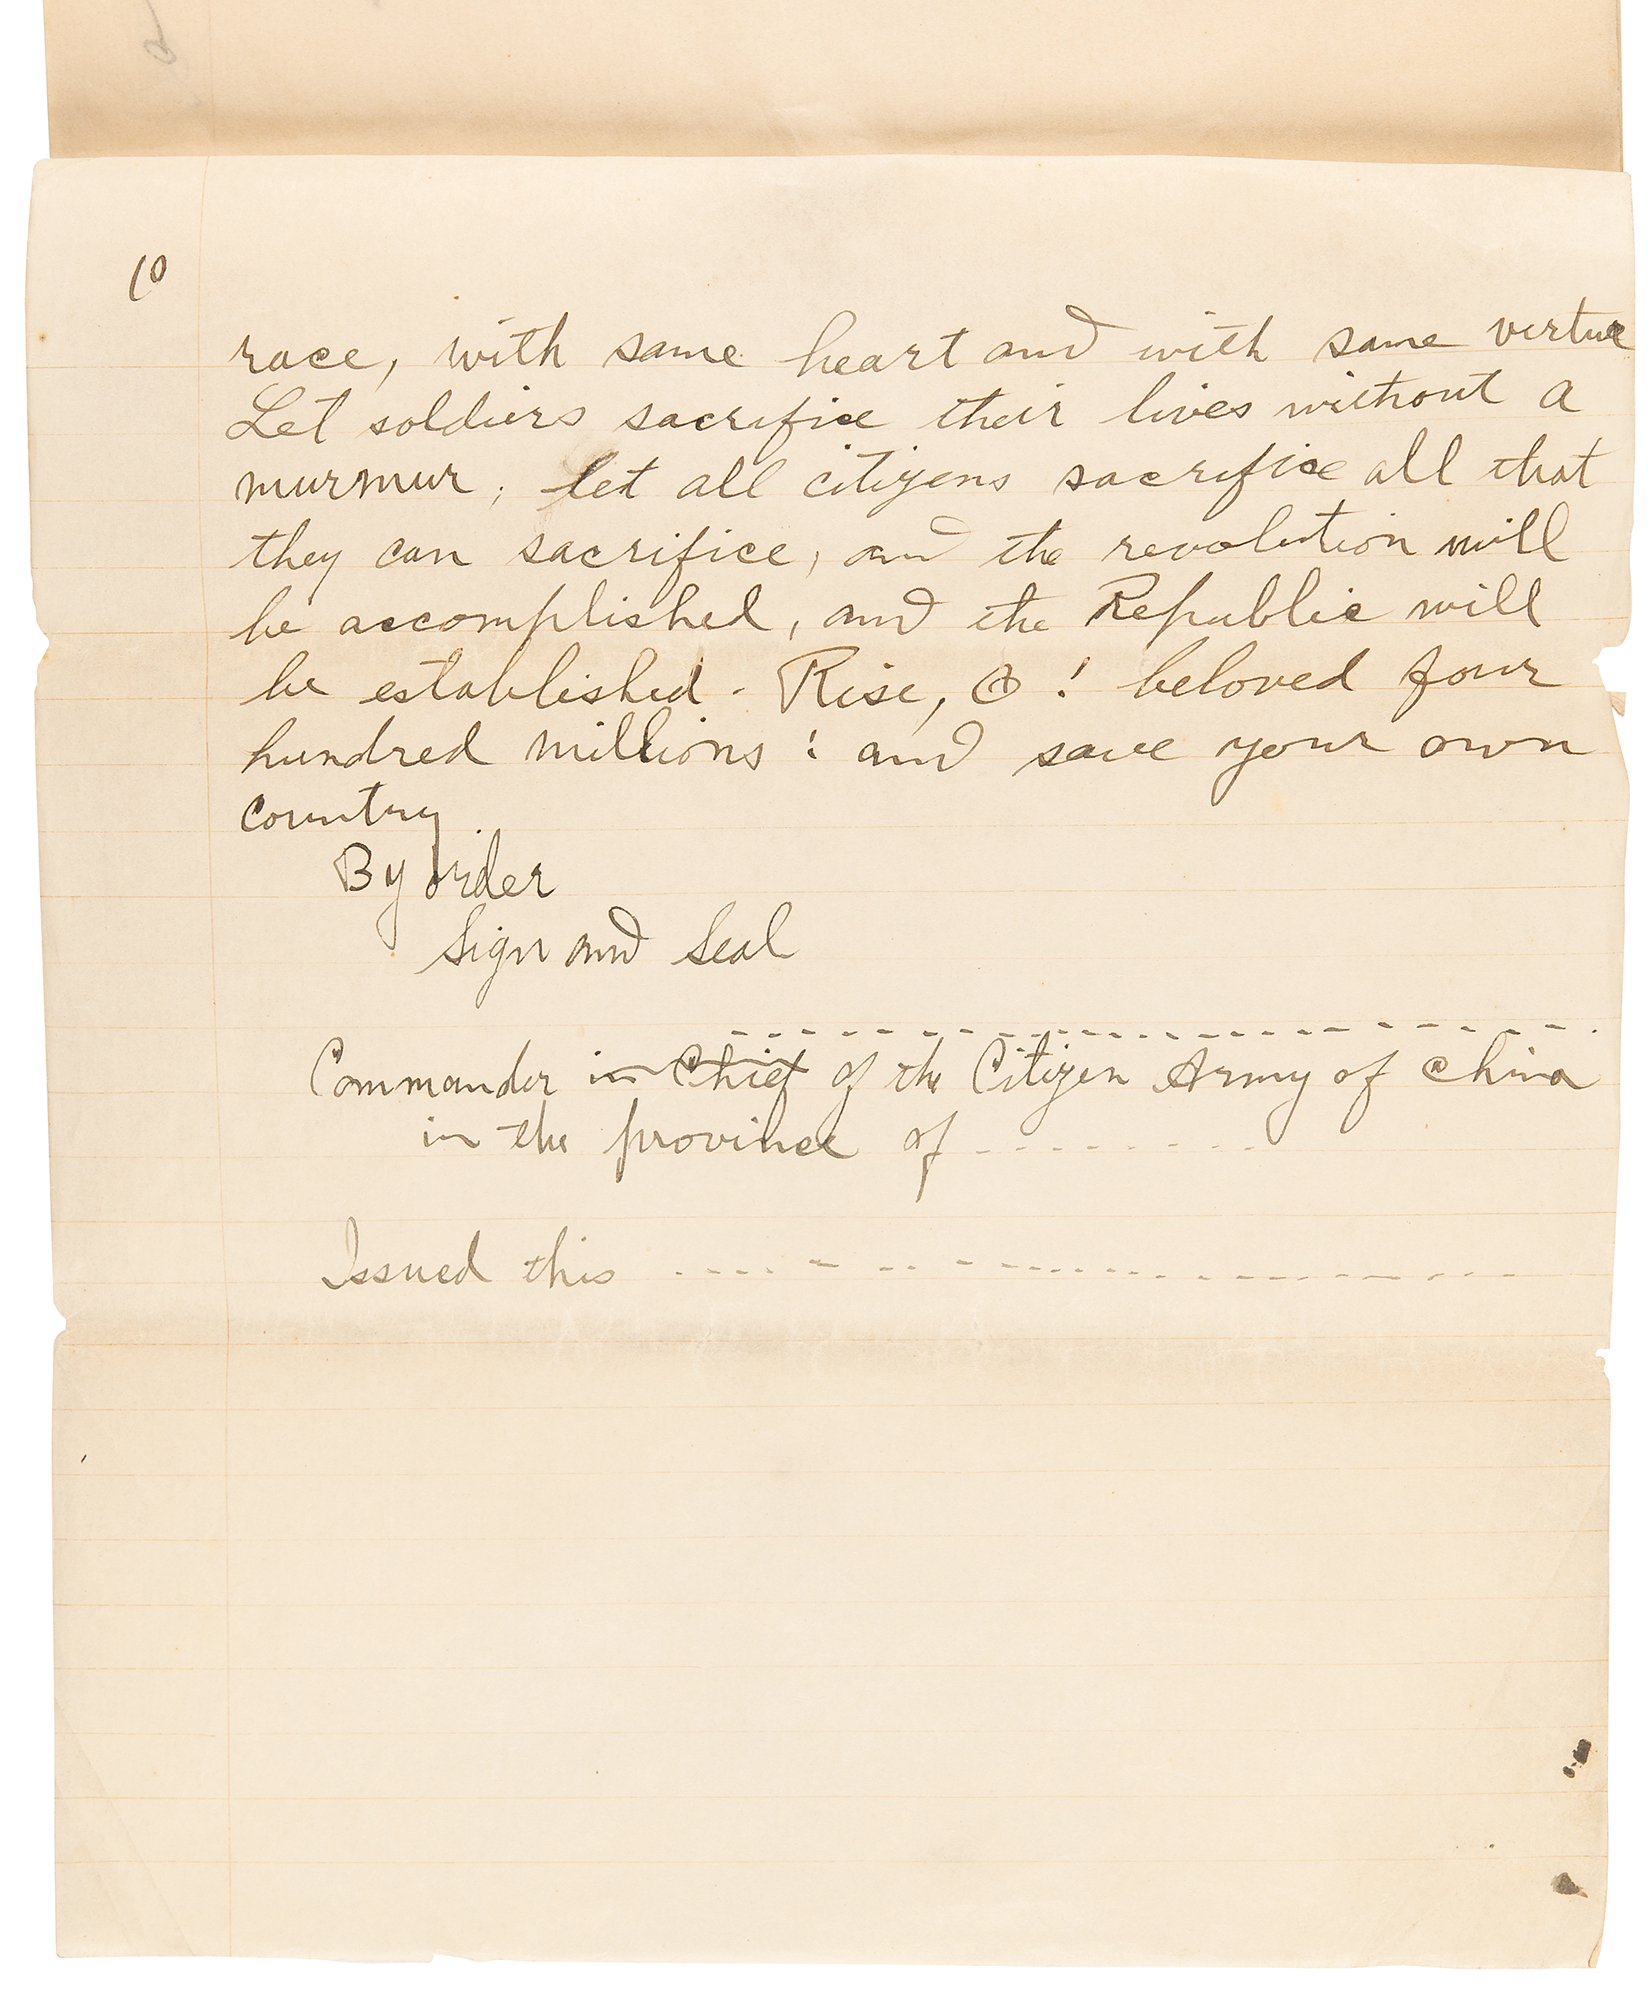 10
race, with same heart and with same virtue
Let soldiers sacrifice their lives without a
murmur; let all citizens sacrifice all that
they can sacrifice, and the revolution will
be accomplished, and the Republic will
be established. Rise, O! beloved four
hundred millions! and save your own
country.
By order
Sign and Seal
Commander in Chief of the Citizen Army of China
in the province of
Issued this